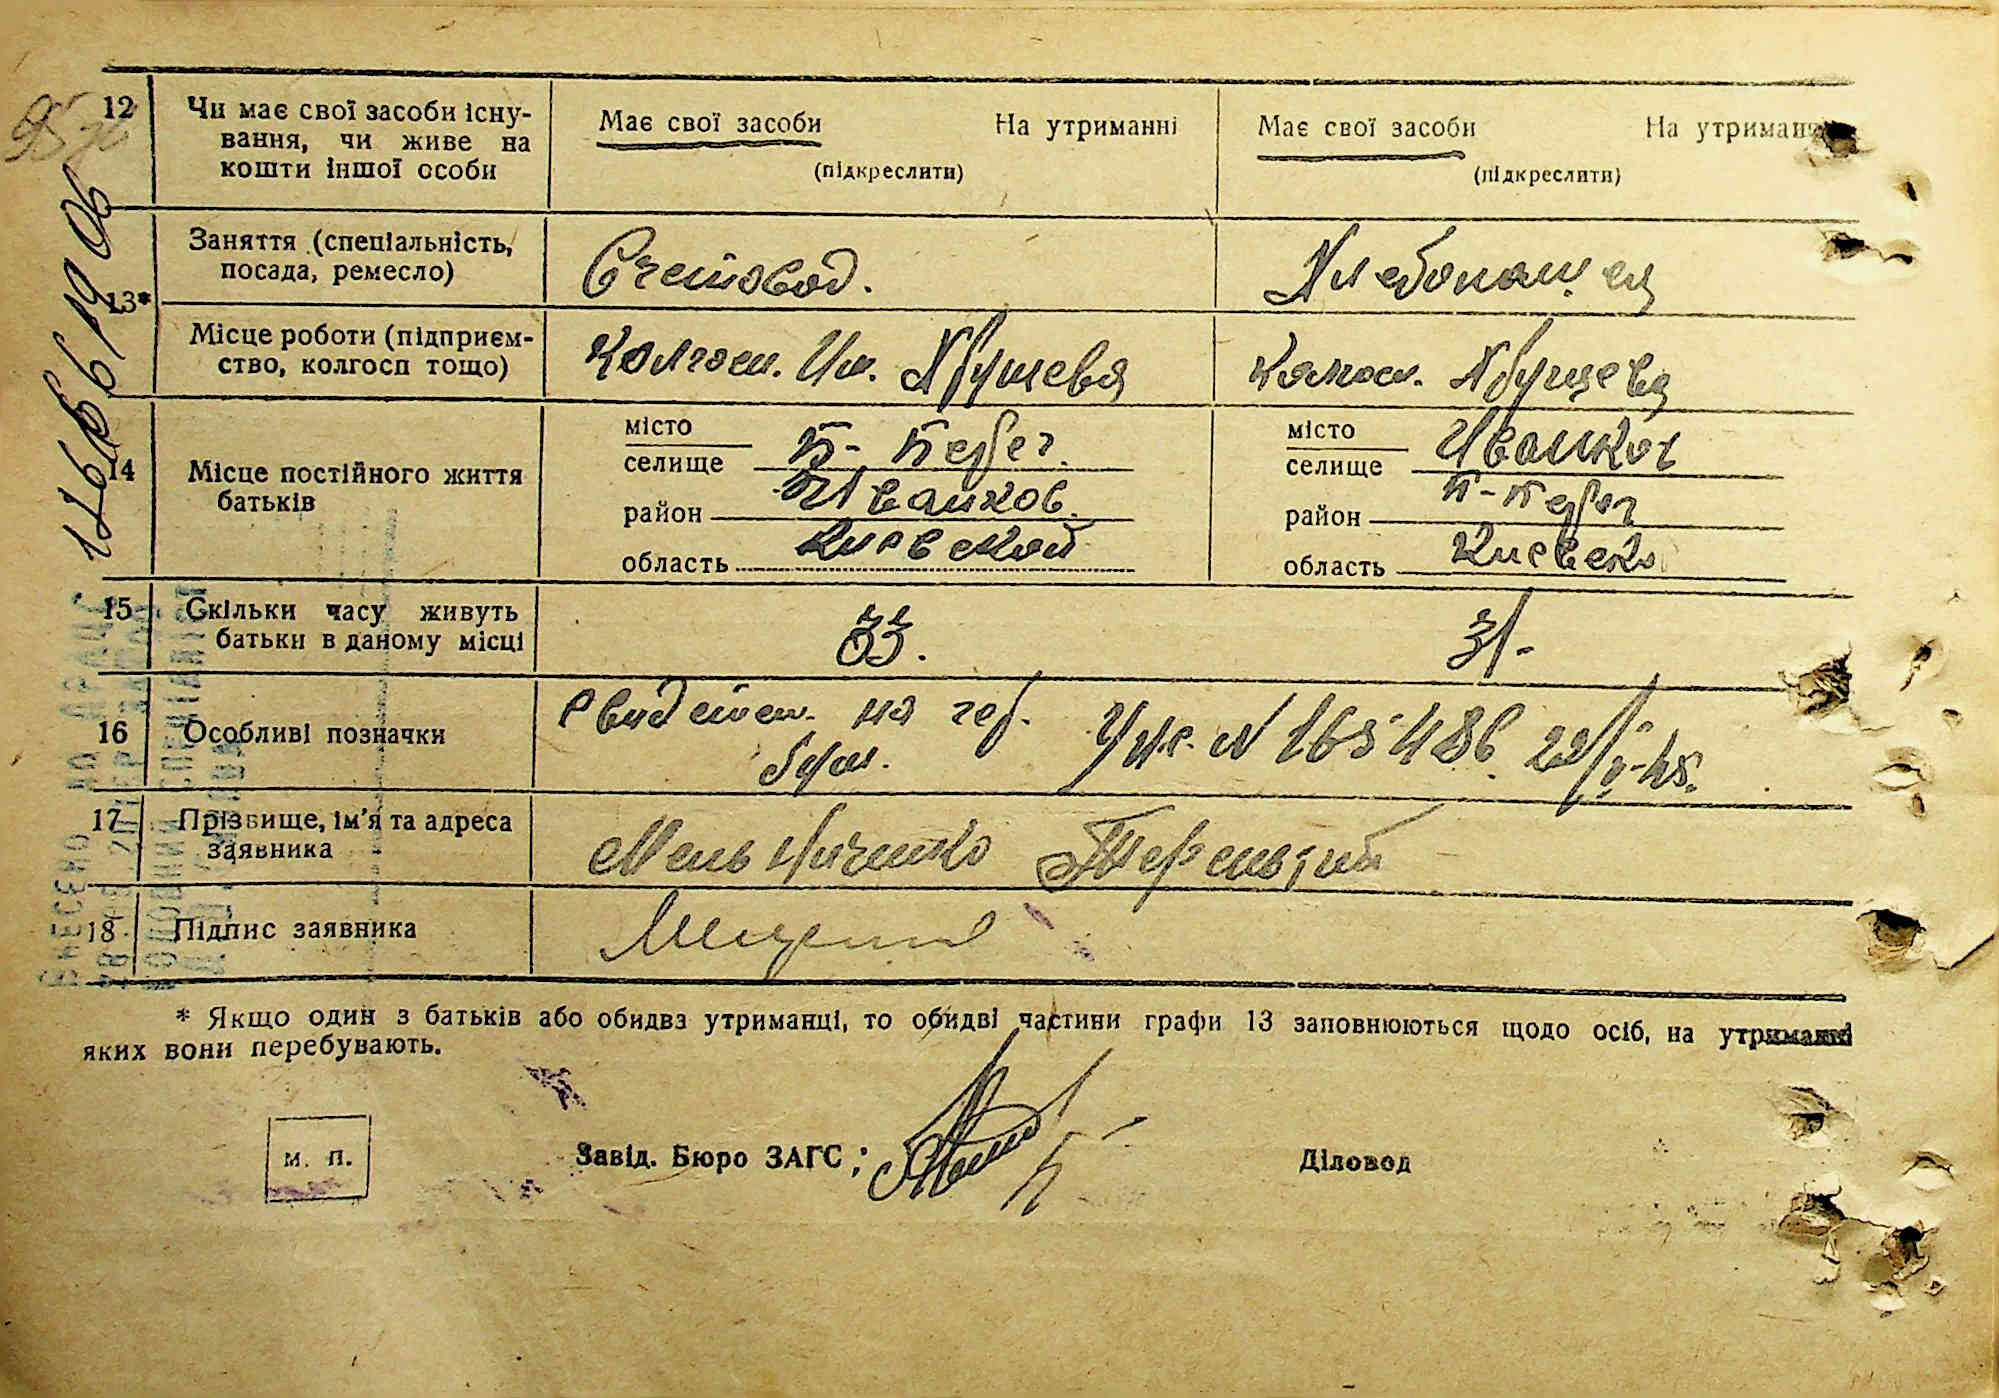 12 Чи має свої засоби існу-
вання, чи живе на
кошти іншої особи
Має свої засоби На утриманні
(підкреслити)
Має свої засоби На утриманні
(підкреслити)
13*
Заняття (спеціальність,
посада, ремесло)
Счетовод.
Хлебопашец
Місце роботи (підприєм-
ство, колгосп тощо)
Колхоз. Им. Хрущева
Колхоз. Хрущева
14 Місце постійного життя
батьків
місто
селище П-
район Иванков.
область Киевской
місто
селище Иванков
район П-
область Киевско
15 Скільки часу живуть
батьки в даному місці
33.
31-
16 Особливі позначки
Свидетел. на
N 165486
17 Прізвище, ім'я та адреса
заявника
Мельниченко Терентий
18 Підпис заявника
* Якщо один з батьків або обидва утриманці, то обидві частини графи 13 заповнюються щодо осіб, на утриманні
яких вони перебувають.
м. п.
Завід. Бюро ЗАГС
Діловод